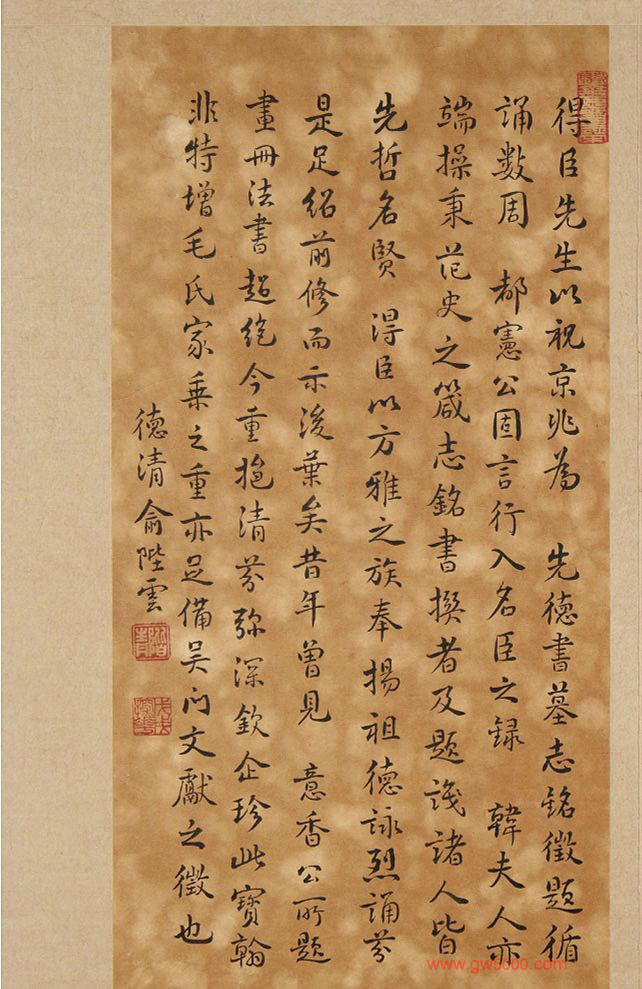 得臣先生以祝京兆為 先德書墓志銘徵題循
誦數周 都憲公固言行入名臣之録 韓夫人亦
端操秉范史之箴志銘書撰者及題識諸人皆
先哲名賢 得臣以方雅之族奉揚祖德詠烈誦芬
是足紹前修而示後葉矣昔年曾見 意香公所題
畫冊法書超絶今重挹清芬弥深欽企珍此寶翰
非特增毛氏家乗之重亦足備吴门文獻之徵也
德清俞陛雲
www.gw5000.com